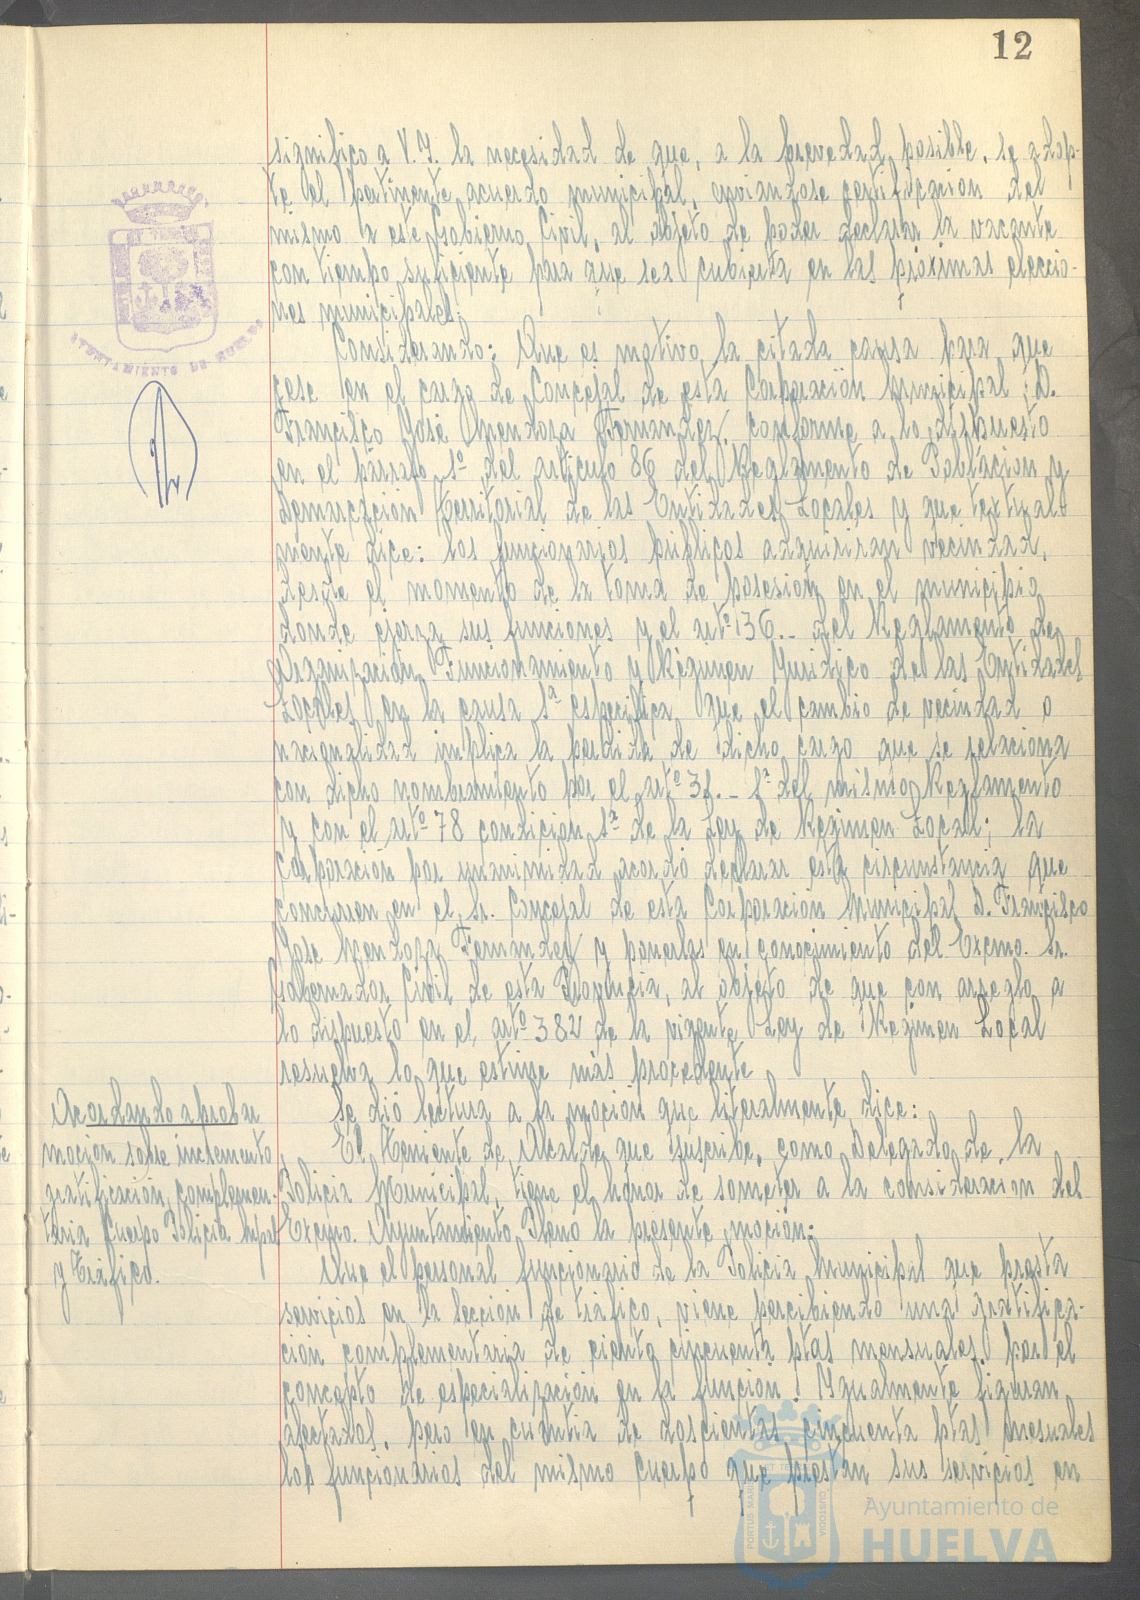 12
significo a V.I. la necesidad de que, a la brevedad posible, se adop-
te el pertinente acuerdo municipal, enviandose certificacion del
mismo a este Gobierno Civil, al objeto de poder declarar la vacante
con tiempo suficiente para que sea cubierta en las próximas eleccio-
nes municipales.
Considerando: Que es motivo la citada causa para que
cese en el cargo de Concejal de esta Corporación Municipal, D.
Francisco José Mendoza Fernandez, conforme a lo dispuesto
en el párrafo 1º del articulo 86 del Reglamento de Población y
Demarcación Territorial de las Entidades Locales y que textual-
mente dice: los funcionarios públicos adquirirán vecindad,
desde el momento de la toma de posesión en el municipio
donde ejerza sus funciones y el artº 136.- del Reglamento de
Organización, Funcionamiento y Régimen Juridico de las Entidades
Locales en la causa 1ª especifica que el cambio de vecindad o
nacionalidad implica la perdida de dicho cargo que se relaciona
con dicho nombramiento por el artº 38.- 1ª del mismo Reglamento
y con el artº 78 condición 1ª de la Ley de Régimen Local; la
Corporación por unanimidad acordó declarar esta circunstancia que
concurren en el Sr. Concejal de esta Corporación Municipal D. Francisco
José Mendoza Fernandez y ponerlas en conocimiento del Excmo. Sr.
Gobernador Civil de esta Provincia, al objeto de que con arreglo a
lo dispuesto en el artº 382 de la vigente Ley de Régimen Local
resuelva lo que estime más procedente
Acordando aprobar
moción sobre incremento
gratificación complemen-
taria Cuerpo Policia Mpal
y Tráfico.
Se dió lectura a la moción que literalmente dice:
El Teniente de Alcalde que suscribe, como Delegado de la
Policia Municipal, tiene el honor de someter a la consideración del
Excmo. Ayuntamiento Pleno la presente moción:
Que el personal funcionario de la Policia Municipal que presta
servicios en la sección de tráfico, viene percibiendo una gratifica-
ción complementaria de ciento cincuenta ptas mensuales, por el
concepto de especialización en la función. Igualmente figuran
afectados, pero en cuantia de doscientas cincuenta ptas mesuales
los funcionarios del mismo cuerpo que prestan sus servicios en
AYUNTAMIENTO DE HUELVA
Ayuntamiento de
HUELVA